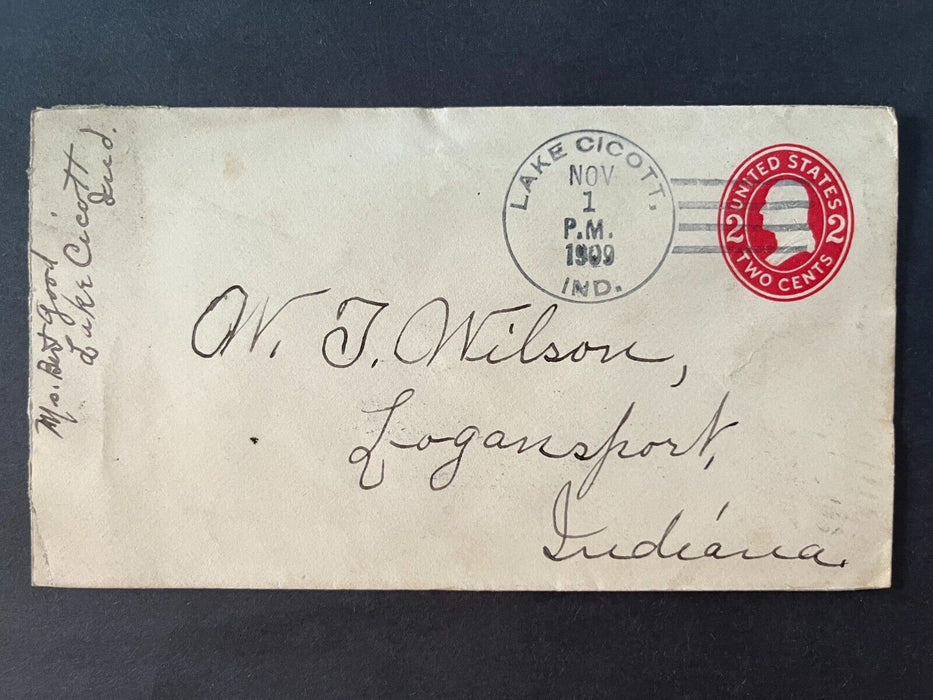 Ms. Bert Good
Lake Cicott
Ind.
LAKE CICOTT.
NOV
1
P.M.
1909
IND.
UNITED STATES
2 2
TWO CENTS
W. T. Wilson,
Logansport,
Indiana.